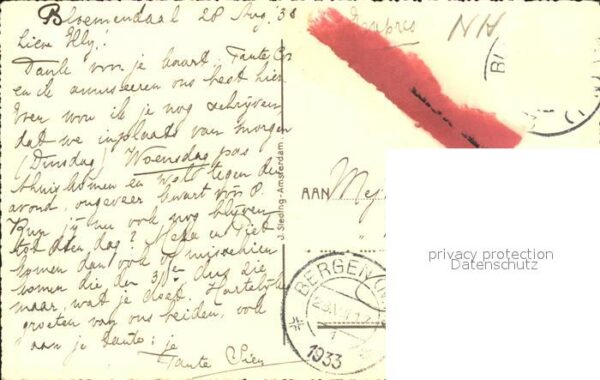 Bloemendaal 28 Aug. 33
Lieve Elly!
Dank voor je kaart. Tante Co
en ik amuseeren ons best hier
Even wou ik je nog schrijven,
dat we inplaats van morgen
(Dinsdag) Woensdag pas
thuiskomen en wel tegen de
avond, ongeveer kwart vóór 8.
Kun jij nu ook nog blijven
tot dien dag? en Piet
komen dan ook of misschien
komen die den 31en dus zie
maar, wat je doet. Hartelijke
groeten van ons beiden, ook
aan je tante: je
Tante Sien
J. Sleding-Amsterdam
Expres
NH
AAN Mej
BERGEN (N
1933
privacy protection
Datenschutz